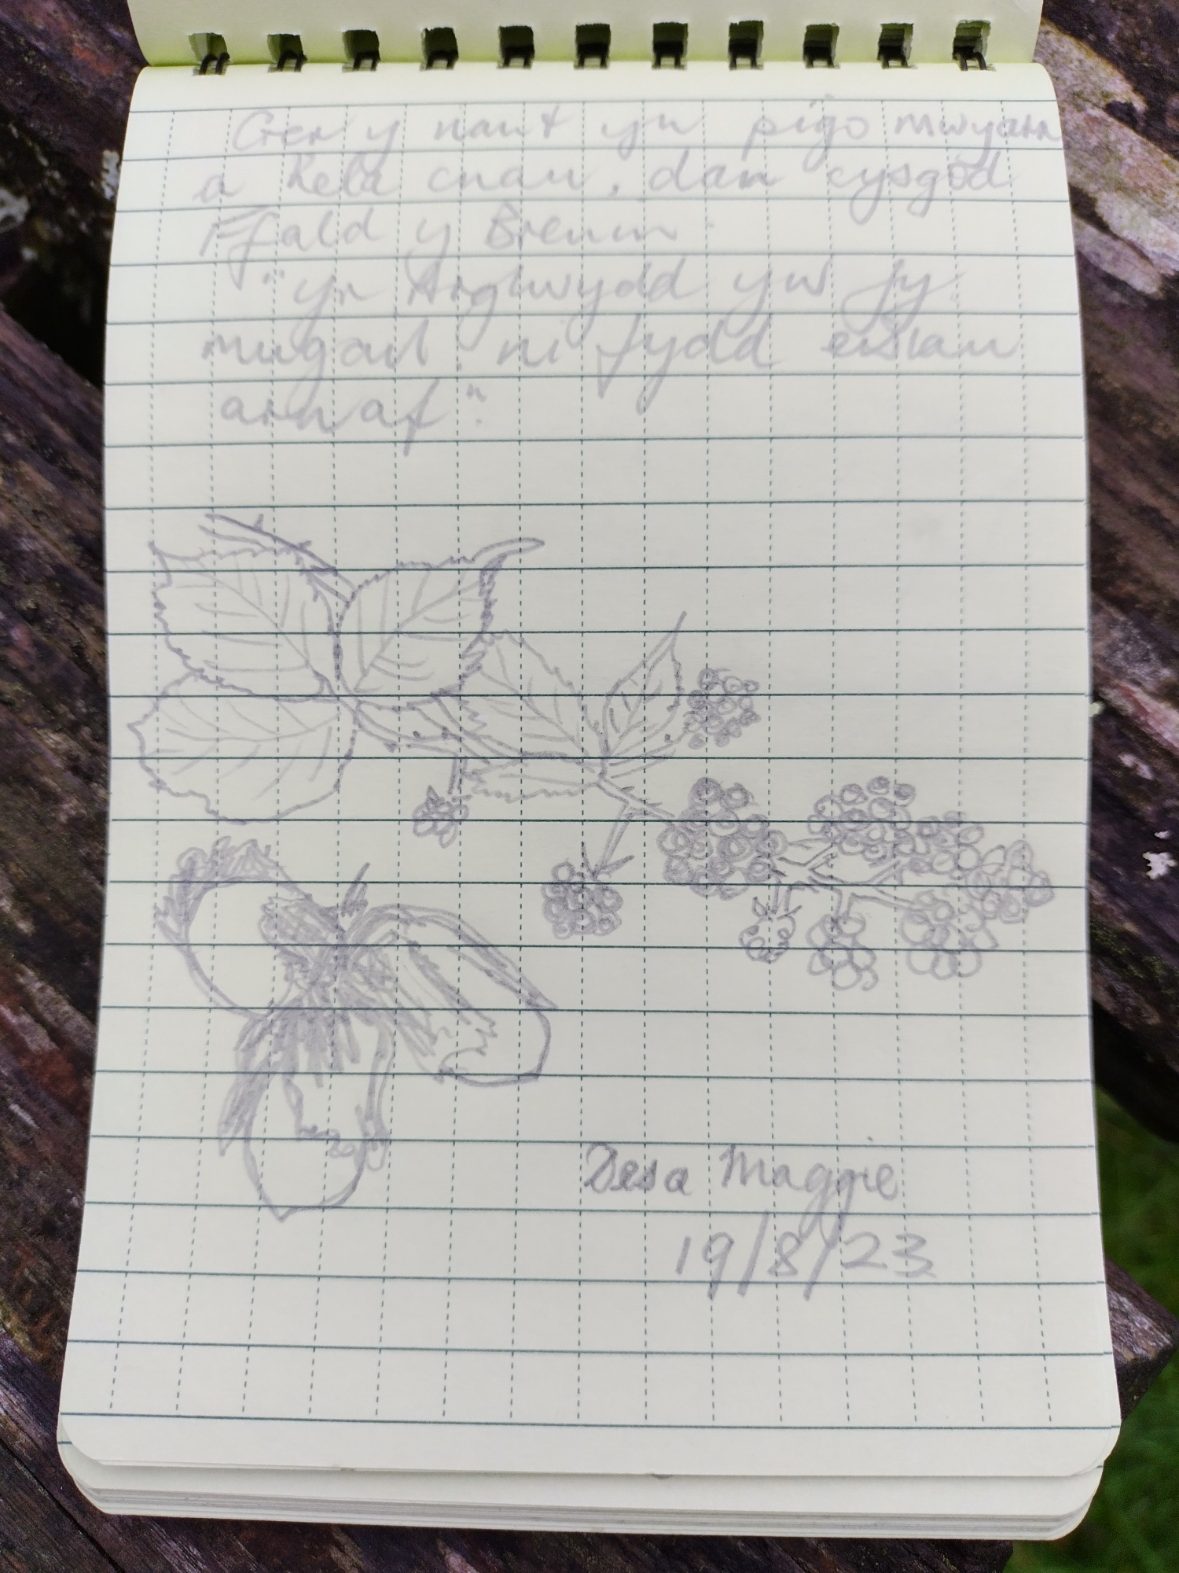 Ger y nant yn pigo mwyarn
a hela cnau, dan cysgod
Ffald y Brenin.
"Yr Arglwydd yw fy
mugail ni fydd eisiau
arnaf".
Desa Maggie
19/8/23